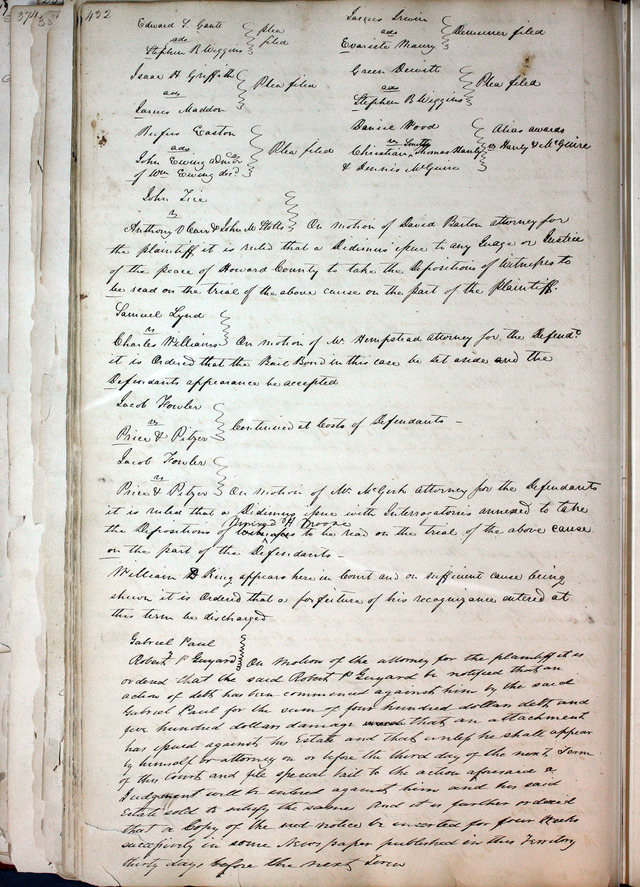 432
Edward S. Gantt
ads
Stephen R Wiggins
plea filed
Jacques Irwin
ads
Evariste Maury
Demurrer filed
Isaac H Griffith
ads
James Maddon
Plea filed
Green Dewitt
ads
Stephen R Wiggins
Plea filed
Rufus Easton
ads
John Ewing admor
of Wm Ewing decd.
Plea filed
Daniel Wood
vs
Christian Smith, Thomas Hanly
& Dennis McGuire
Alias awards
vs Hanly & McGuire
John Tice
vs
Anthony V Carr & John M Stotts On motion of David Barton attorney for
the plaintiff it is ruled that a Didimus issue to any Judge or Justice
of the peace of Howard County to take the Depositions of Witnesses to
be read on the trial of the above cause on the part of the Plaintiff.
Samuel Lynd
vs
Charles Williams On motion of Mr Hempstead attorney for the Defendt.
it is Ordered that the Bail Bond in this case be set aside and the
Defendants appearance be accepted
Jacob Fowler
vs
Price & Pitzer
Continued at Costs of Defendants –
Jacob Fowler
vs
Price & Pitzer On motion of Mr McGirk attorney for the Defendants
it is ruled that a Didimus issue with Interrogatories annexed to take
the Depositions of to be read on the trial of the above cause
on the part of the Defendants –
William King appears here in Court and on sufficient cause being
shewn it is Ordered that a forfeiture of his recognizance entered at
this term be discharged
Gabriel Paul
vs
Robert P Guyard On motion of the attorney for the plaintiff it is
ordered that the said Robert P Guyard be notified that an
action of debt has been commenced against him by the said
Gabriel Paul for the sum of four hundred dollars debt and
five hundred dollars damage that an attachment
has issued against his Estate and that unless he shall appear
by himself or attorney on or before the third day of the next Term
of this Court and file special bail to the action aforesaid a
Judgment will be entered against him and his said
Estate sold to satisfy the same And it is further ordered
that a Copy of the said notice be inserted for four weeks
successively in some News paper published in this Territory
thirty days before the next Term